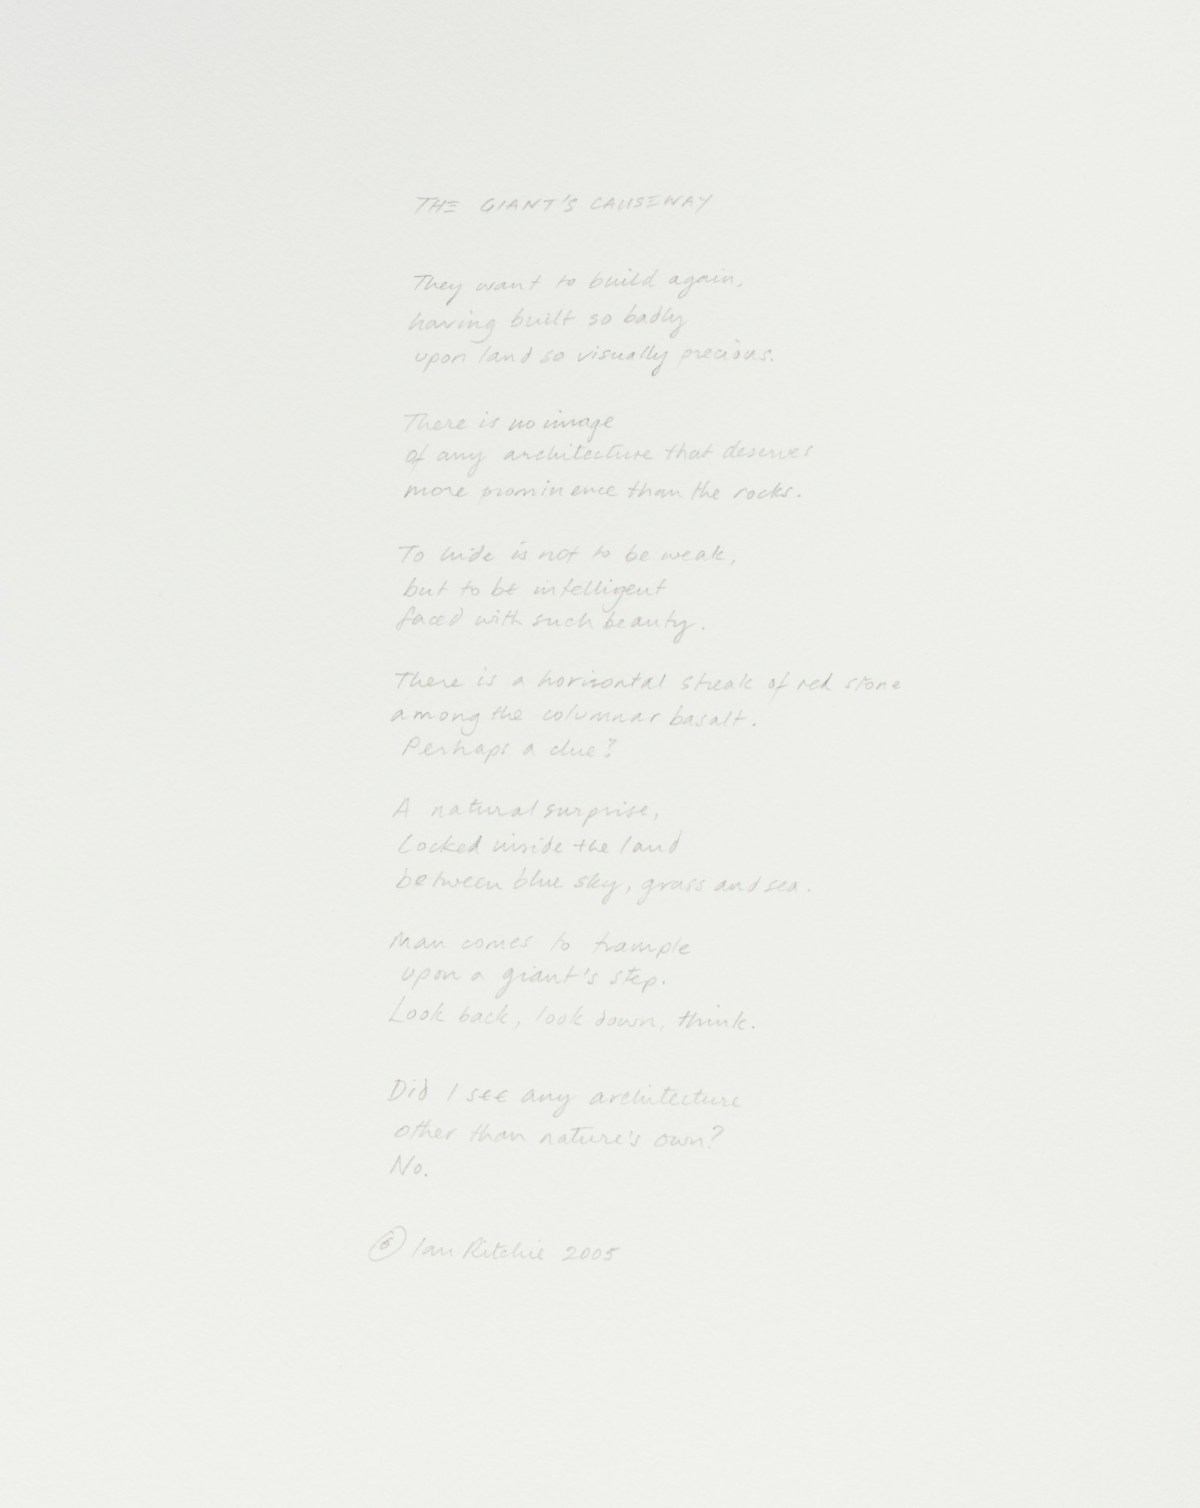 THE GIANT'S CAUSEWAY
They want to build again,
having built so badly
upon land so visually precious.
There is no image
of any architecture that deserves
more prominence than the rocks.
To hide is not to be weak,
but to be intelligent
faced with such beauty.
There is a horizontal streak of red stone
among the columnar basalt.
Perhaps a clue?
A natural surprise,
Locked inside the land
between blue sky, grass and sea.
Man comes to trample
upon a giant's step.
Look back, look down, think.
Did I see any architecture
other than nature's own?
No.
© Ian Ritchie 2005